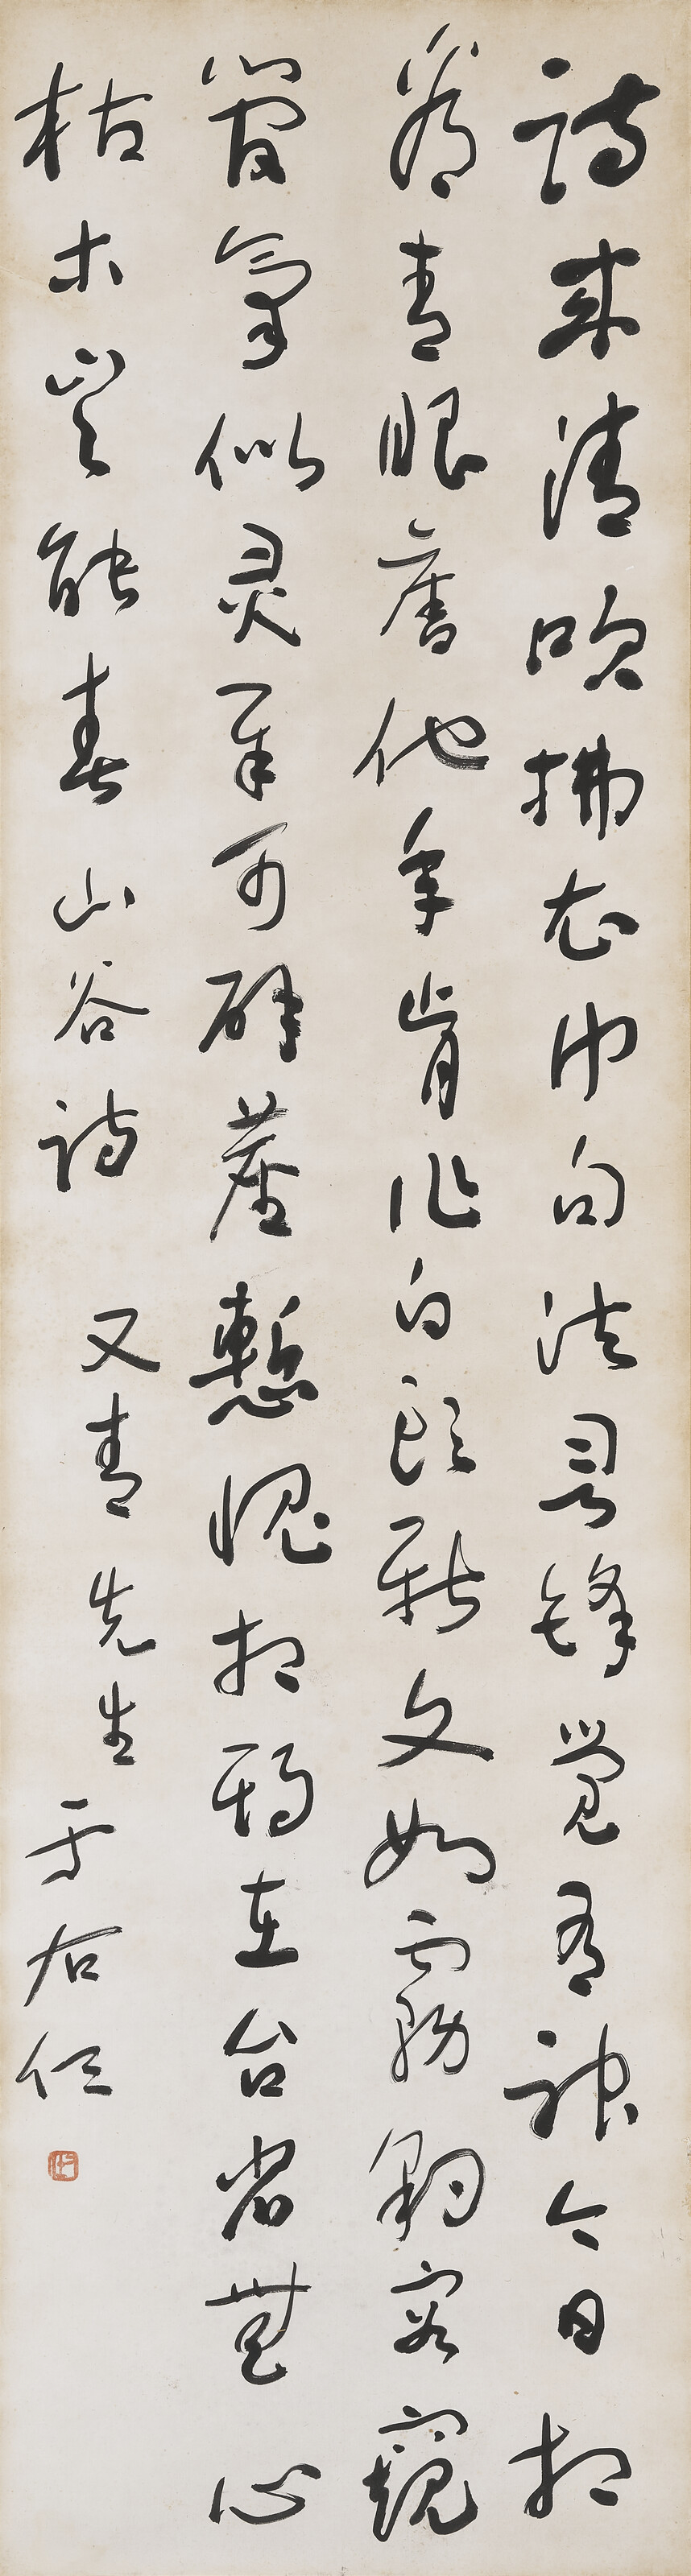 詩來清吹拂衣巾句法詞鋒覺有神今日相
看青眼舊他年肯作白頭新文如霧豹容窺
管氣似灵犀可辟塵慙愧相期在台省無心
枯木豈能春山谷詩 又青先生 于右任